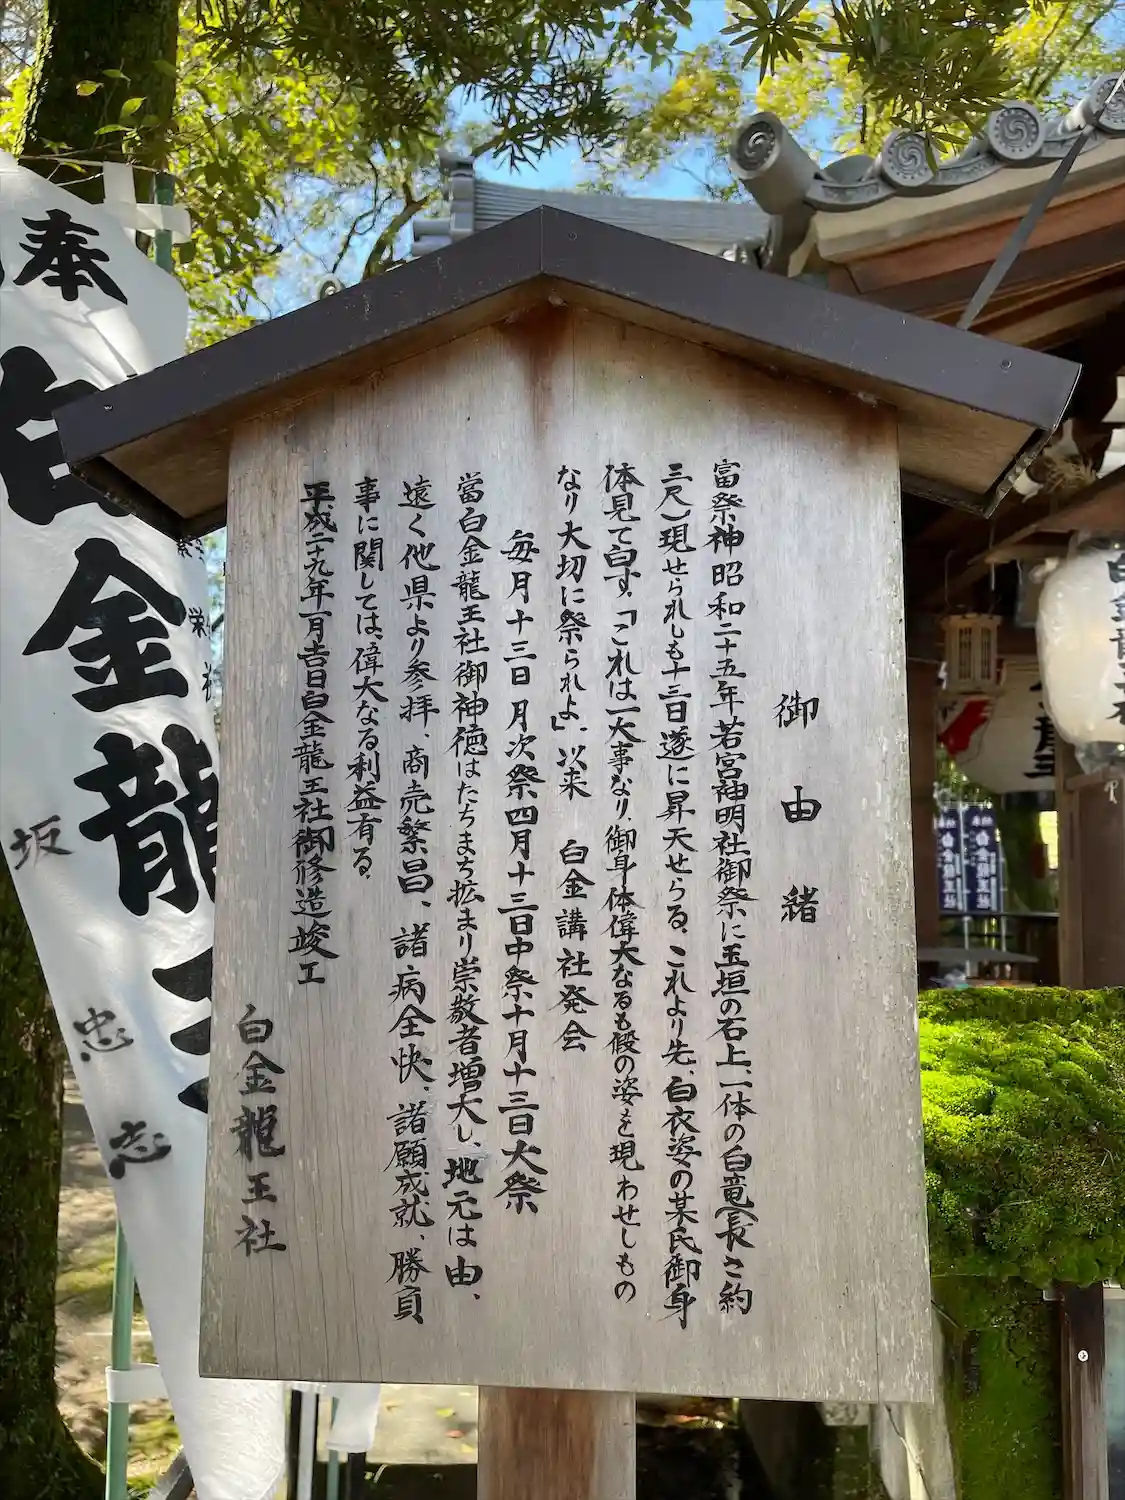 御由緒
富祭神昭和二十五年若宮神明社御祭に玉垣の石上、一体の白竜(長さ約
三尺)現せられしも十三日遂に昇天せらる。これより先、白衣姿の某氏御身
体見て白す。「これは一大事なり、御身体偉大なるも假の姿を現わせしもの
なり大切に祭られよ」、以来 白金講社発会
毎月十三日月次祭四月十三日中祭十月十三日大祭
當白金龍王社御神徳はたちまち拡まり崇敬者増大し、地元は由、
遠く他県より参拝、商売繁昌、諸病全快、諸願成就、勝負
事に関しては、偉大なる利益有る。
平成二十九年一月吉日白金龍王社御修造竣工
白金龍王社
奉
白金龍王
坂忠志
白金龍王社